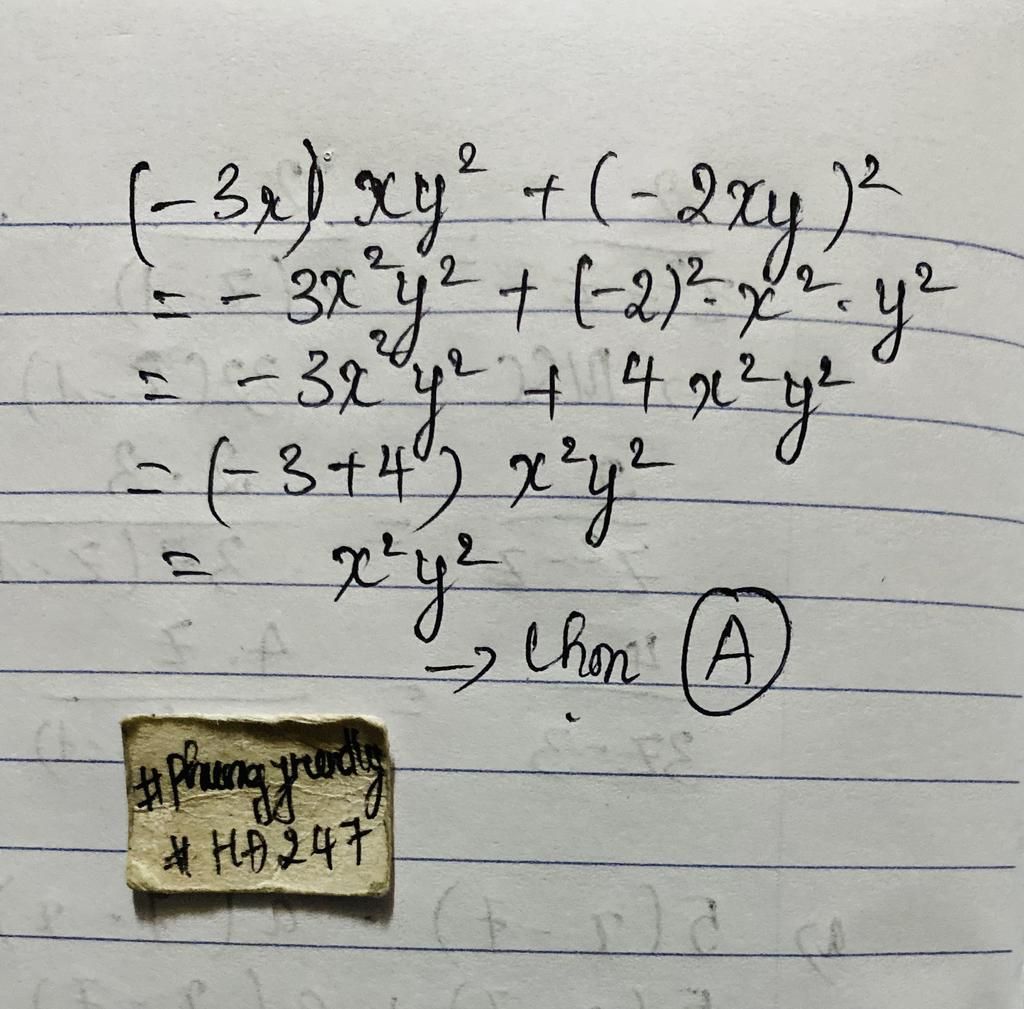 (-3x) xy² + (-2xy)²
= - 3x²y² + (-2)² . x² . y²
= - 3x²y² + 4x²y²
= (-3+4) x²y²
= x²y²
→ Chọn A
#phungfriendly
#HĐ247